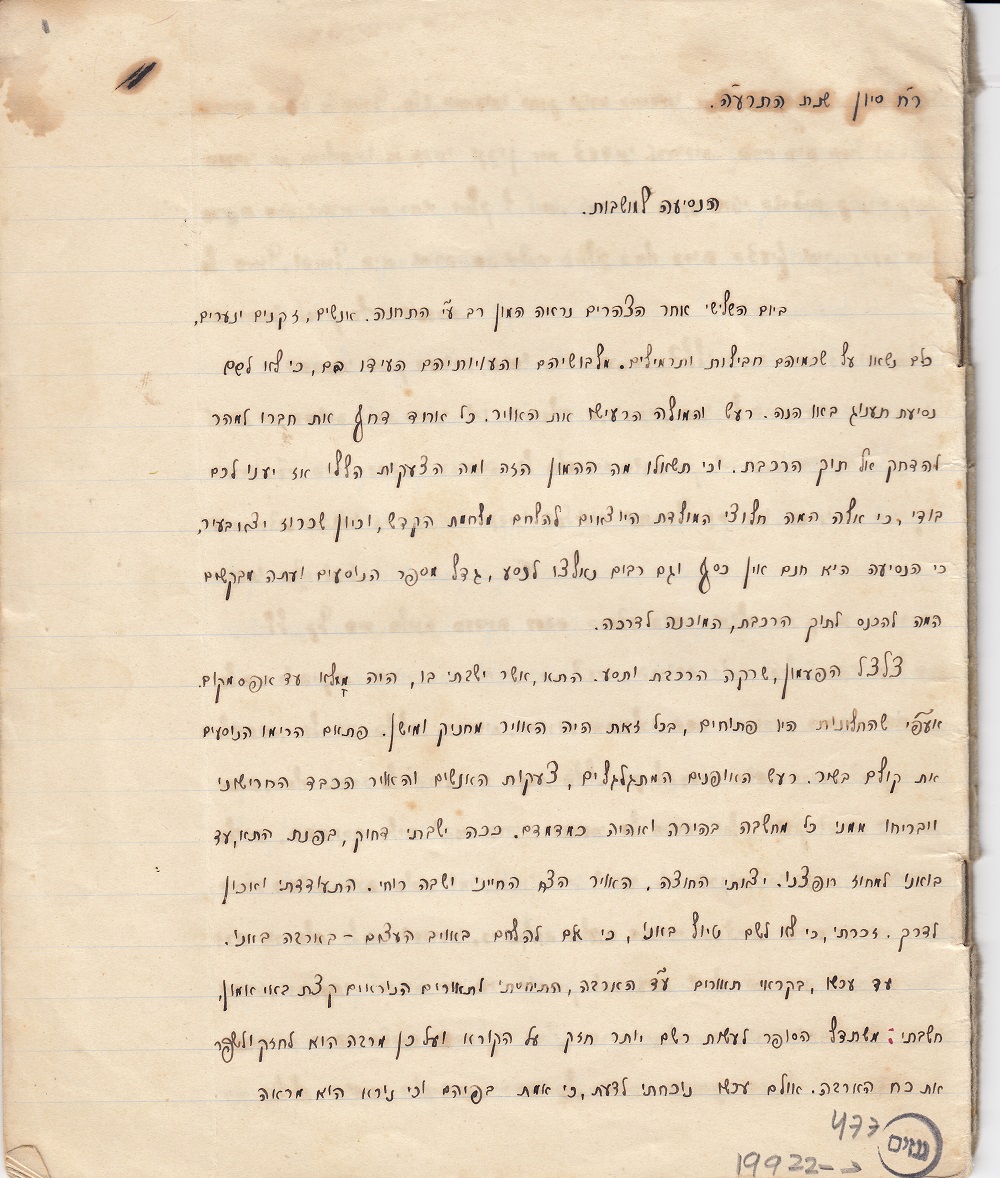 ר״ח סיון שנת התרע״ה.
הנסיעה למושבות.
ביום השלישי אחר הצהרים נראה המון רב ע״י התחנה. אנשים, זקנים ונערים,
כלם נשאו על שכמיהם חבילות ותרמילים. מלבושיהם והעויותיהם העידו בם, כי לא לשם
נסיעת תענוג באו הנה. רעש והמולה הרעישו את האויר. כל אחד דחף את חברו למהר
להדחק אל תוך הרכבת. וכי תשאלו מה ההמון הזה ומה הצעקות הללו אז יענו לכם
בודי, כי אלה המה חלוצי המולדת היוצאים להלחם מלחמת הקדש, וכיון שכרוז יצא בעיר,
כי הנסיעה היא חנם אין כסף וגם רבים נאלצו לנסע, גדל מספר הנוסעים ועתה מבקשים
המה להכנס לתוך הרכבת, המוכנה לדרכה.
צלצל הפעמון, שרקה הרכבת ותסע. התא, אשר ישבתי בו, היה מלא עד אפס מקום.
אעפ״י שהחלונות היו פתוחים, בכל זאת היה האויר מחניק ומישן. פתאם הרימו הנוסעים
את קולם בשיר. רעש האופנים המתגלגלים, צעקות האנשים והאויר הכבד החרישוני
ויבריחו ממני כל מחשבה בהירה ואהיה כמדמדם. ככה ישבתי דחוק, בפנת התא, עד
בואנו למחוז חפצנו. יצאתי החוצה, האויר הצח החייני ושבה רוחי. התעודדתי ואכון
לדרך. זכרתי, כי לא לשם טיול באנו, כי אם להלחם באויב העצום – בארבה באנו.
עד עכשו, בקראי תאורים ע״ד הארבה, התיחסתי לתאורים הנוראים קצת באי אמון,
חשבתי: משתדל הסופר לעשות רשם יותר חזק על הקורא ועל כן מרבה הוא לחזק ולשפר
את כח הארבה. אולם עכשו נוכחתי לדעת, כי אמת בפיהם וכי נורא הוא מראה
477
גנזים
19922-